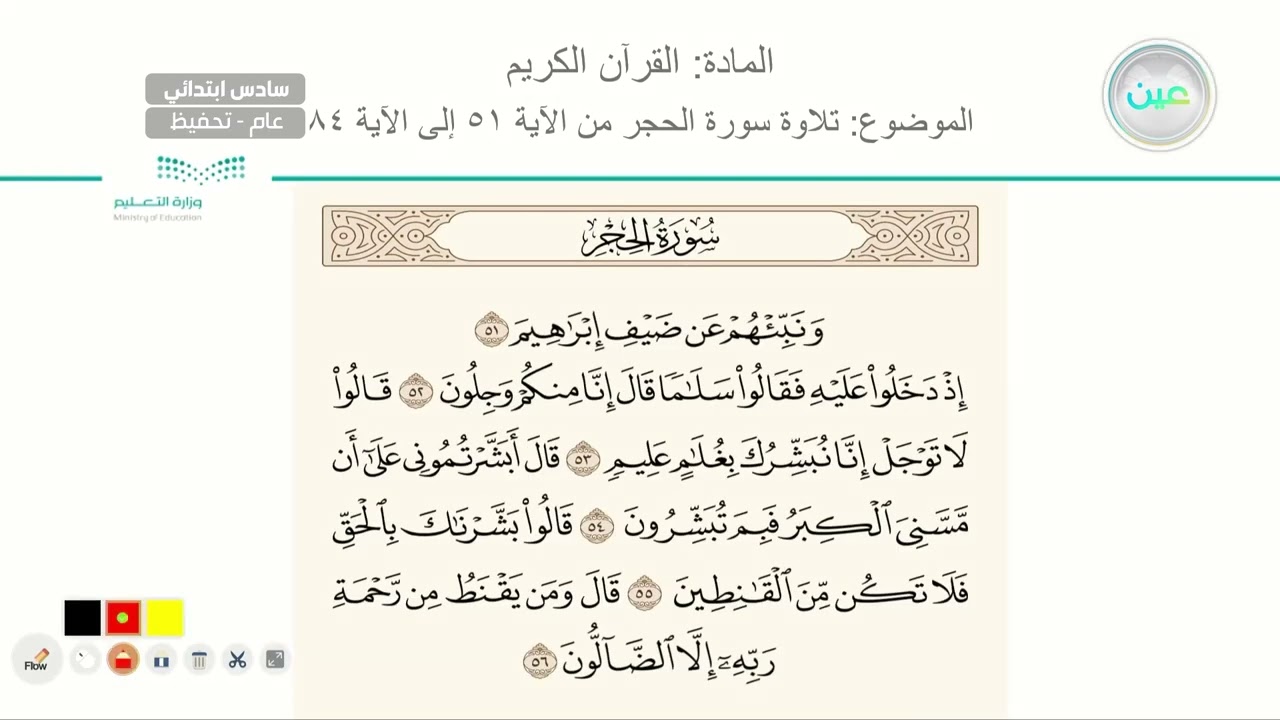 المادة: القرآن الكريم
الموضوع: تلاوة سورة الحجر من الآية ٥١ إلى الآية ٨٤
سادس ابتدائي
عام - تحفيظ
عين
وزارة التعليم
Ministry of Education
سُورَةُ الحِجْرِ
وَنَبِّئْهُمْ عَن ضَيْفِ إِبْرَٰهِيمَ ٥١
إِذْ دَخَلُوا۟ عَلَيْهِ فَقَالُوا۟ سَلَـٰمًا قَالَ إِنَّا مِنكُمْ وَجِلُونَ ٥٢ قَالُوا۟
لَا تَوْجَلْ إِنَّا نُبَشِّرُكَ بِغُلَـٰمٍ عَلِيمٍ ٥٣ قَالَ أَبَشَّرْتُمُونِى عَلَىٰٓ أَن
مَّسَّنِىَ ٱلْكِبَرُ فَبِمَ تُبَشِّرُونَ ٥٤ قَالُوا۟ بَشَّرْنَـٰكَ بِٱلْحَقِّ
فَلَا تَكُن مِّنَ ٱلْقَـٰنِطِينَ ٥٥ قَالَ وَمَن يَقْنَطُ مِن رَّحْمَةِ
رَبِّهِۦٓ إِلَّا ٱلضَّآلُّونَ ٥٦
Flow